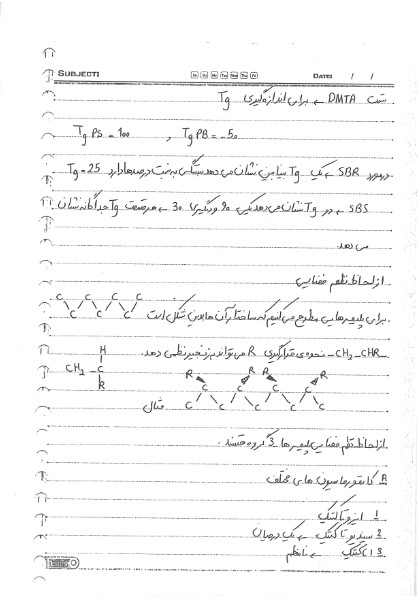 SUBJECT: Sa Su Mo Tu We Th Fr DATE: / /
تست DMTA ← برای اندازه‌گیری Tg
Tg PS = 100 , Tg PB = -50
درمورد SBR ← یک Tg بینابین نشان می دهد بستگی به نسبت درصدها دارد Tg = 25
SBS ← دو Tg نشان می دهد یکی 90 و دیگری 30 ← هر قسمت Tg جداگانه نشان
می دهد
از لحاظ نظم فضایی
برای پلیمرهایی مطرح می کنیم که ساختار آن ها بدین شکل است C C C C C C C C
-CH2-CHR- نحوه ی قرارگیری R می تواند به زنجیر نظمی دهد.
H
CH2 - C
R
R R R R
C C C C
C C C C C
مثال
از لحاظ نظم فضایی پلیمر ها 3 گروه هستند.
R کانفورماسیون های مختلف
1 ایزوتاکتیک
2 سیندیوتاکتیک ← یک درمیان
3 اتاکتیک ← نامنظم